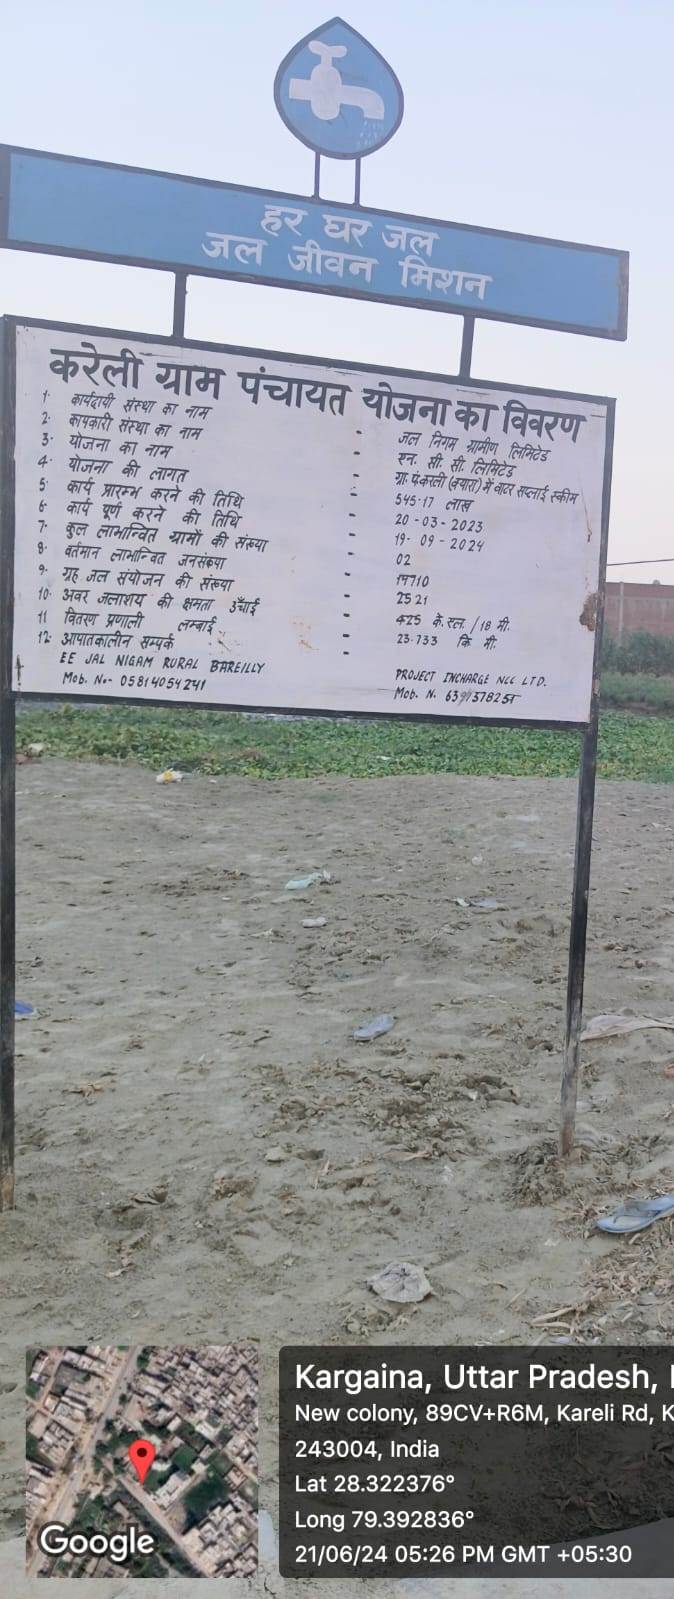 हर घर जल
जल जीवन मिशन
करेली ग्राम पंचायत योजना का विवरण
1. कार्यदायी संस्था का नाम - जल निगम ग्रामीण लिमिटेड
2. कार्यकारी संस्था का नाम - एन. सी. सी. लिमिटेड
3. योजना का नाम - ग्रा. पं. करेली (क्यारा) में वाटर सप्लाई स्कीम
4. योजना की लागत - 545.17 लाख
5. कार्य प्रारम्भ करने की तिथि - 20-03-2023
6. कार्य पूर्ण करने की तिथि - 19-09-2024
7. कुल लाभान्वित ग्रामों की संख्या - 02
8. वर्तमान लाभान्वित जनसंख्या - 14710
9. ग्रह जल संयोजन की संख्या - 2521
10. अवर जलाशय की क्षमता ऊँचाई - 425 के.एल./18 मी.
11 वितरण प्रणाली लम्बाई - 23.733 कि मी.
12. आपातकालीन सम्पर्क -
EE JAL NIGAM RURAL BAREILLY PROJECT INCHARGE NCC LTD.
Mob. No- 05814054241 Mob. N.
Kargaina, Uttar Pradesh,
New colony, 89CV+R6M, Kareli Rd,
243004, India
Lat 28.322376°
Long 79.392836°
21/06/24 05:26 PM GMT +05:30
Google